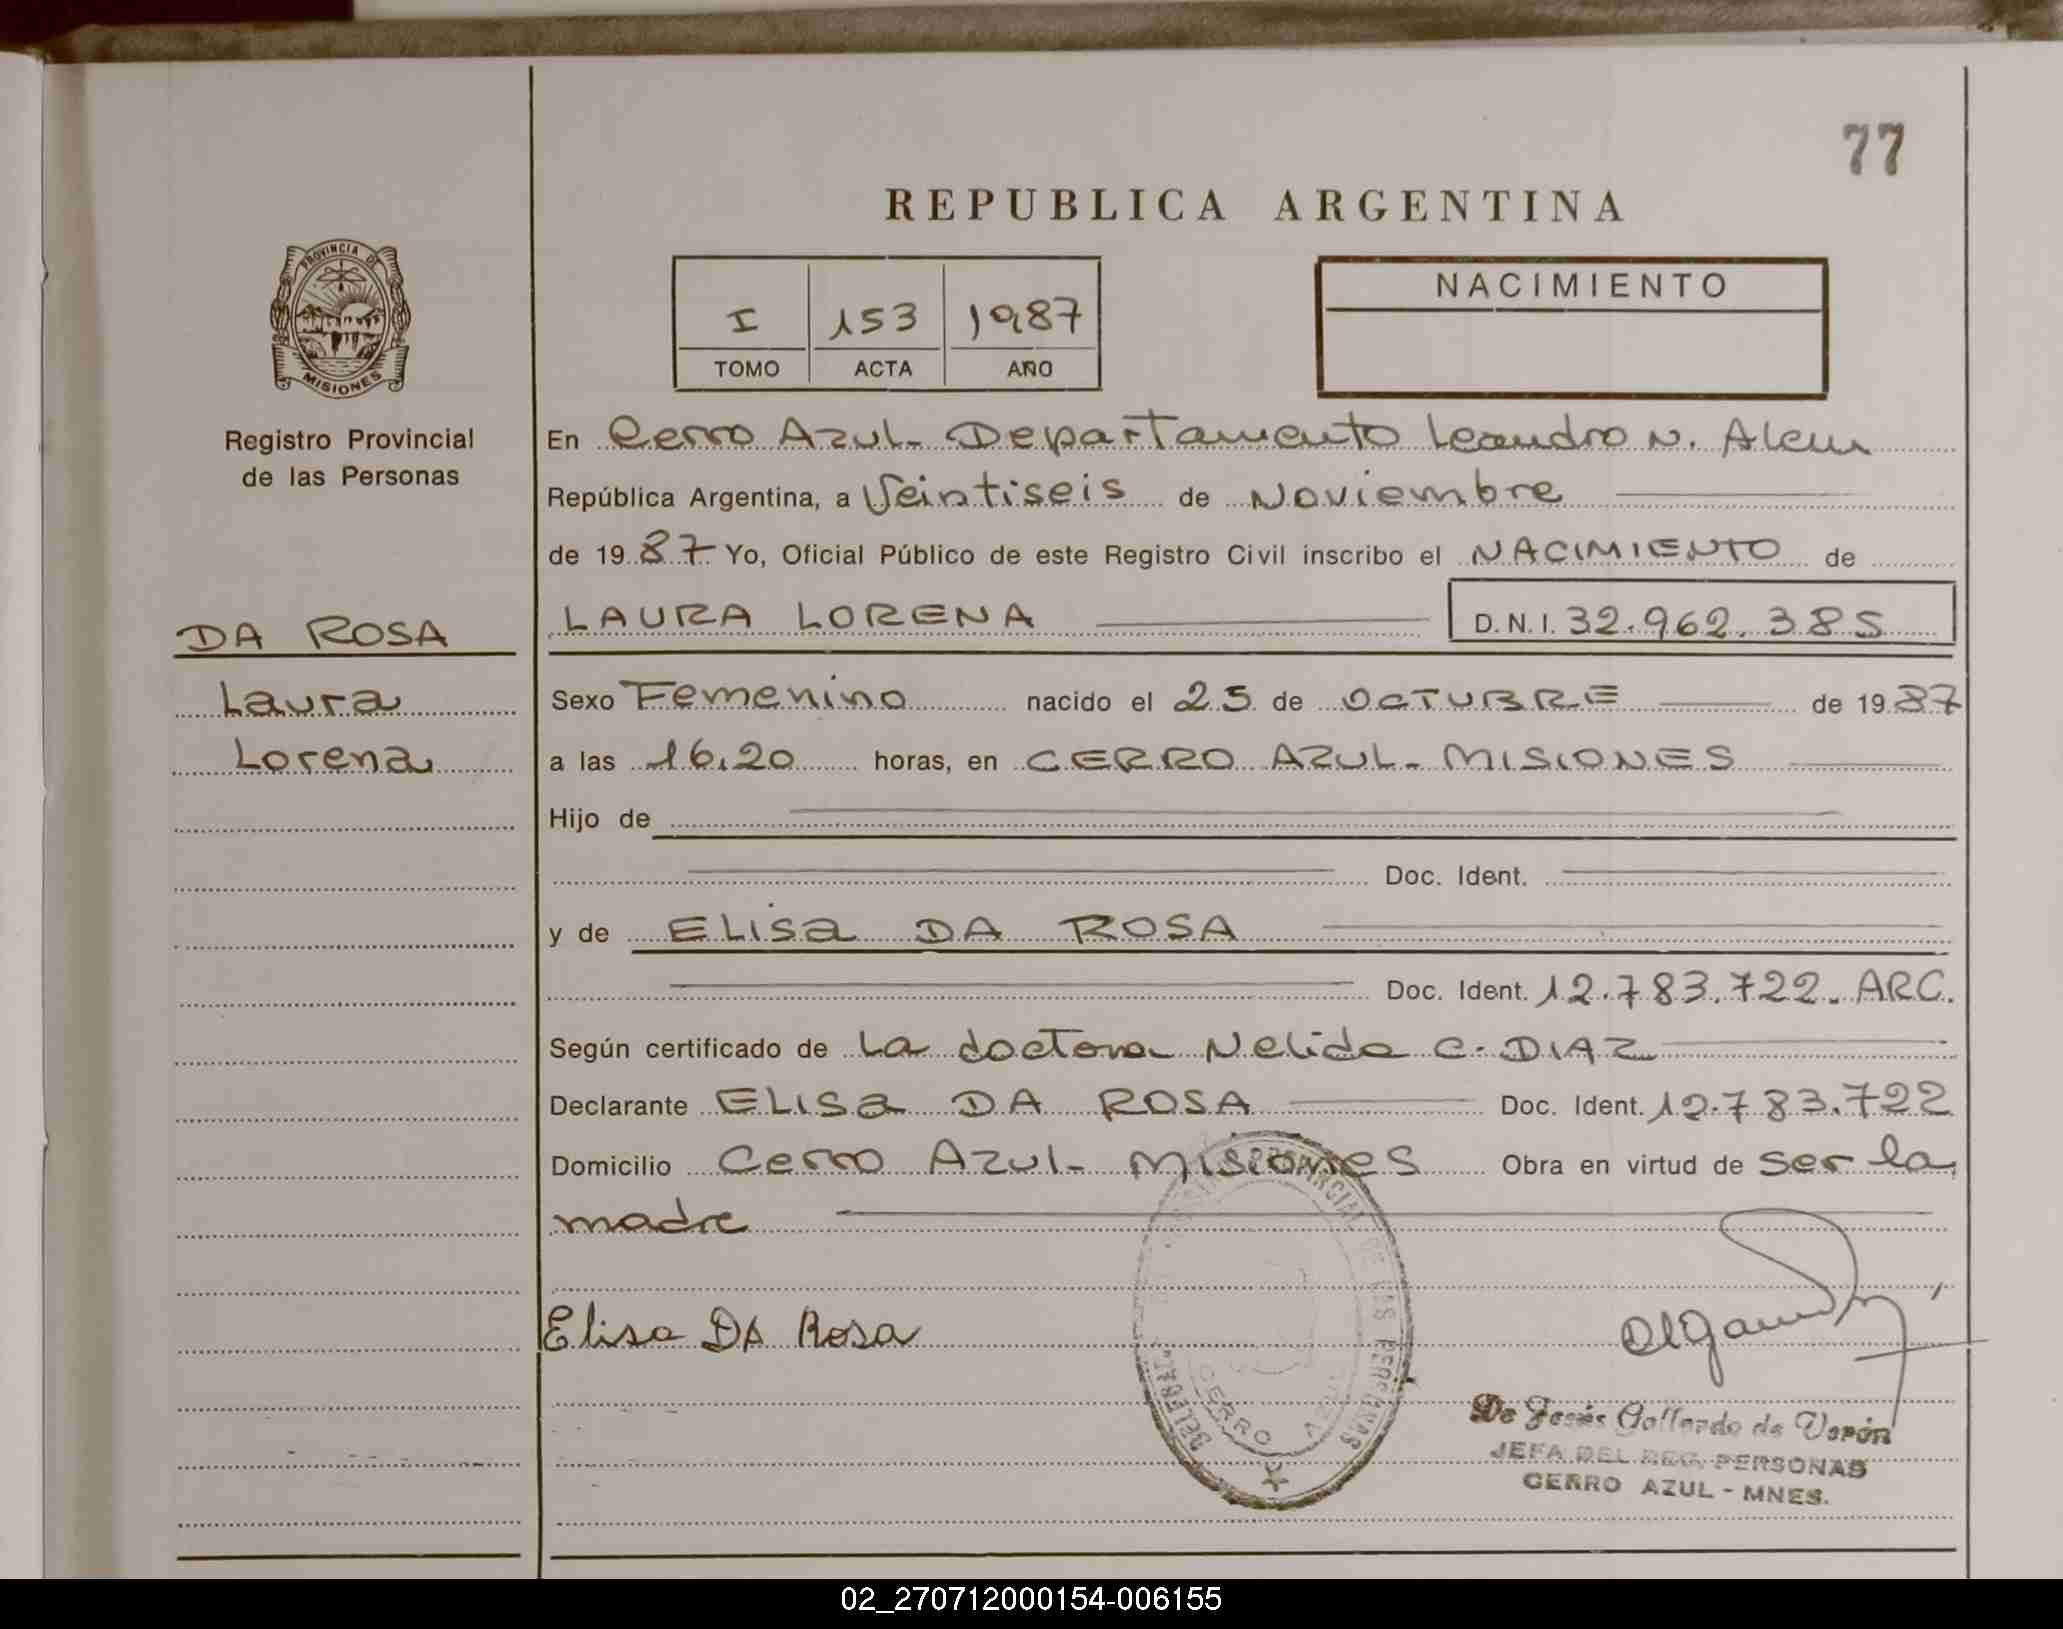 77
REPUBLICA ARGENTINA
PROVINCIA DE
MISIONES
Registro Provincial
de las Personas
I 153 1987
TOMO ACTA AÑO
NACIMIENTO
En Cerro Azul- Departamento Leandro N. Alem
República Argentina, a Veintiseis de Noviembre
de 1987 Yo, Oficial Público de este Registro Civil inscribo el NACIMIENTO de
DA ROSA
LAURA LORENA D.N.I. 32.962.385
Laura
Sexo Femenino nacido el 25 de OCTUBRE de 1987
Lorena
a las 16,20 horas, en CERRO AZUL- MISIONES
Hijo de
Doc. Ident.
y de ELisa DA ROSA
Doc. Ident. 12.783.722. ARG.
Según certificado de La doctora Nelida C. DIAZ
Declarante ELisa DA ROSA Doc. Ident. 12.783.722
Domicilio Cerro Azul- Misiones Obra en virtud de ser la
madre
Elisa DA Rosa
PROVINCIAL DE LAS PERSONAS
CERRO AZUL
De Jesús Gallardo de Verón
JEFA DEL REG. PERSONAS
CERRO AZUL - MNES.
02_270712000154-006155